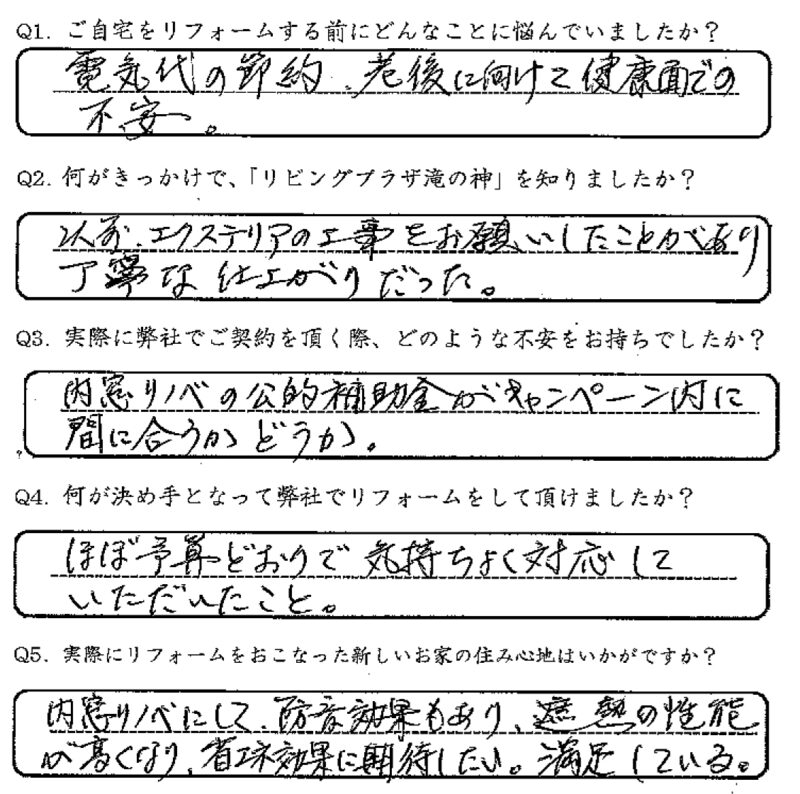 Q1. ご自宅をリフォームする前にどんなことに悩んでいましたか?
電気代の節約、老後に向けて健康面での
不安。
Q2. 何がきっかけで、「リビングプラザ滝の神」を知りましたか?
以前、エクステリアの工事をお願いしたことがあり
丁寧な仕上がりだった。
Q3. 実際に弊社でご契約を頂く際、どのような不安をお持ちでしたか?
内窓リノベの公的補助金がキャンペーン内に
間に合うかどうか。
Q4. 何が決め手となって弊社でリフォームをして頂けましたか?
ほぼ予算どおりで気持ちよく対応して
いただいたこと。
Q5. 実際にリフォームをおこなった新しいお家の住み心地はいかがですか?
内窓リノベにして、防音効果もあり、遮熱の性能
が高くなり、省エネ効果に期待したい。満足している。